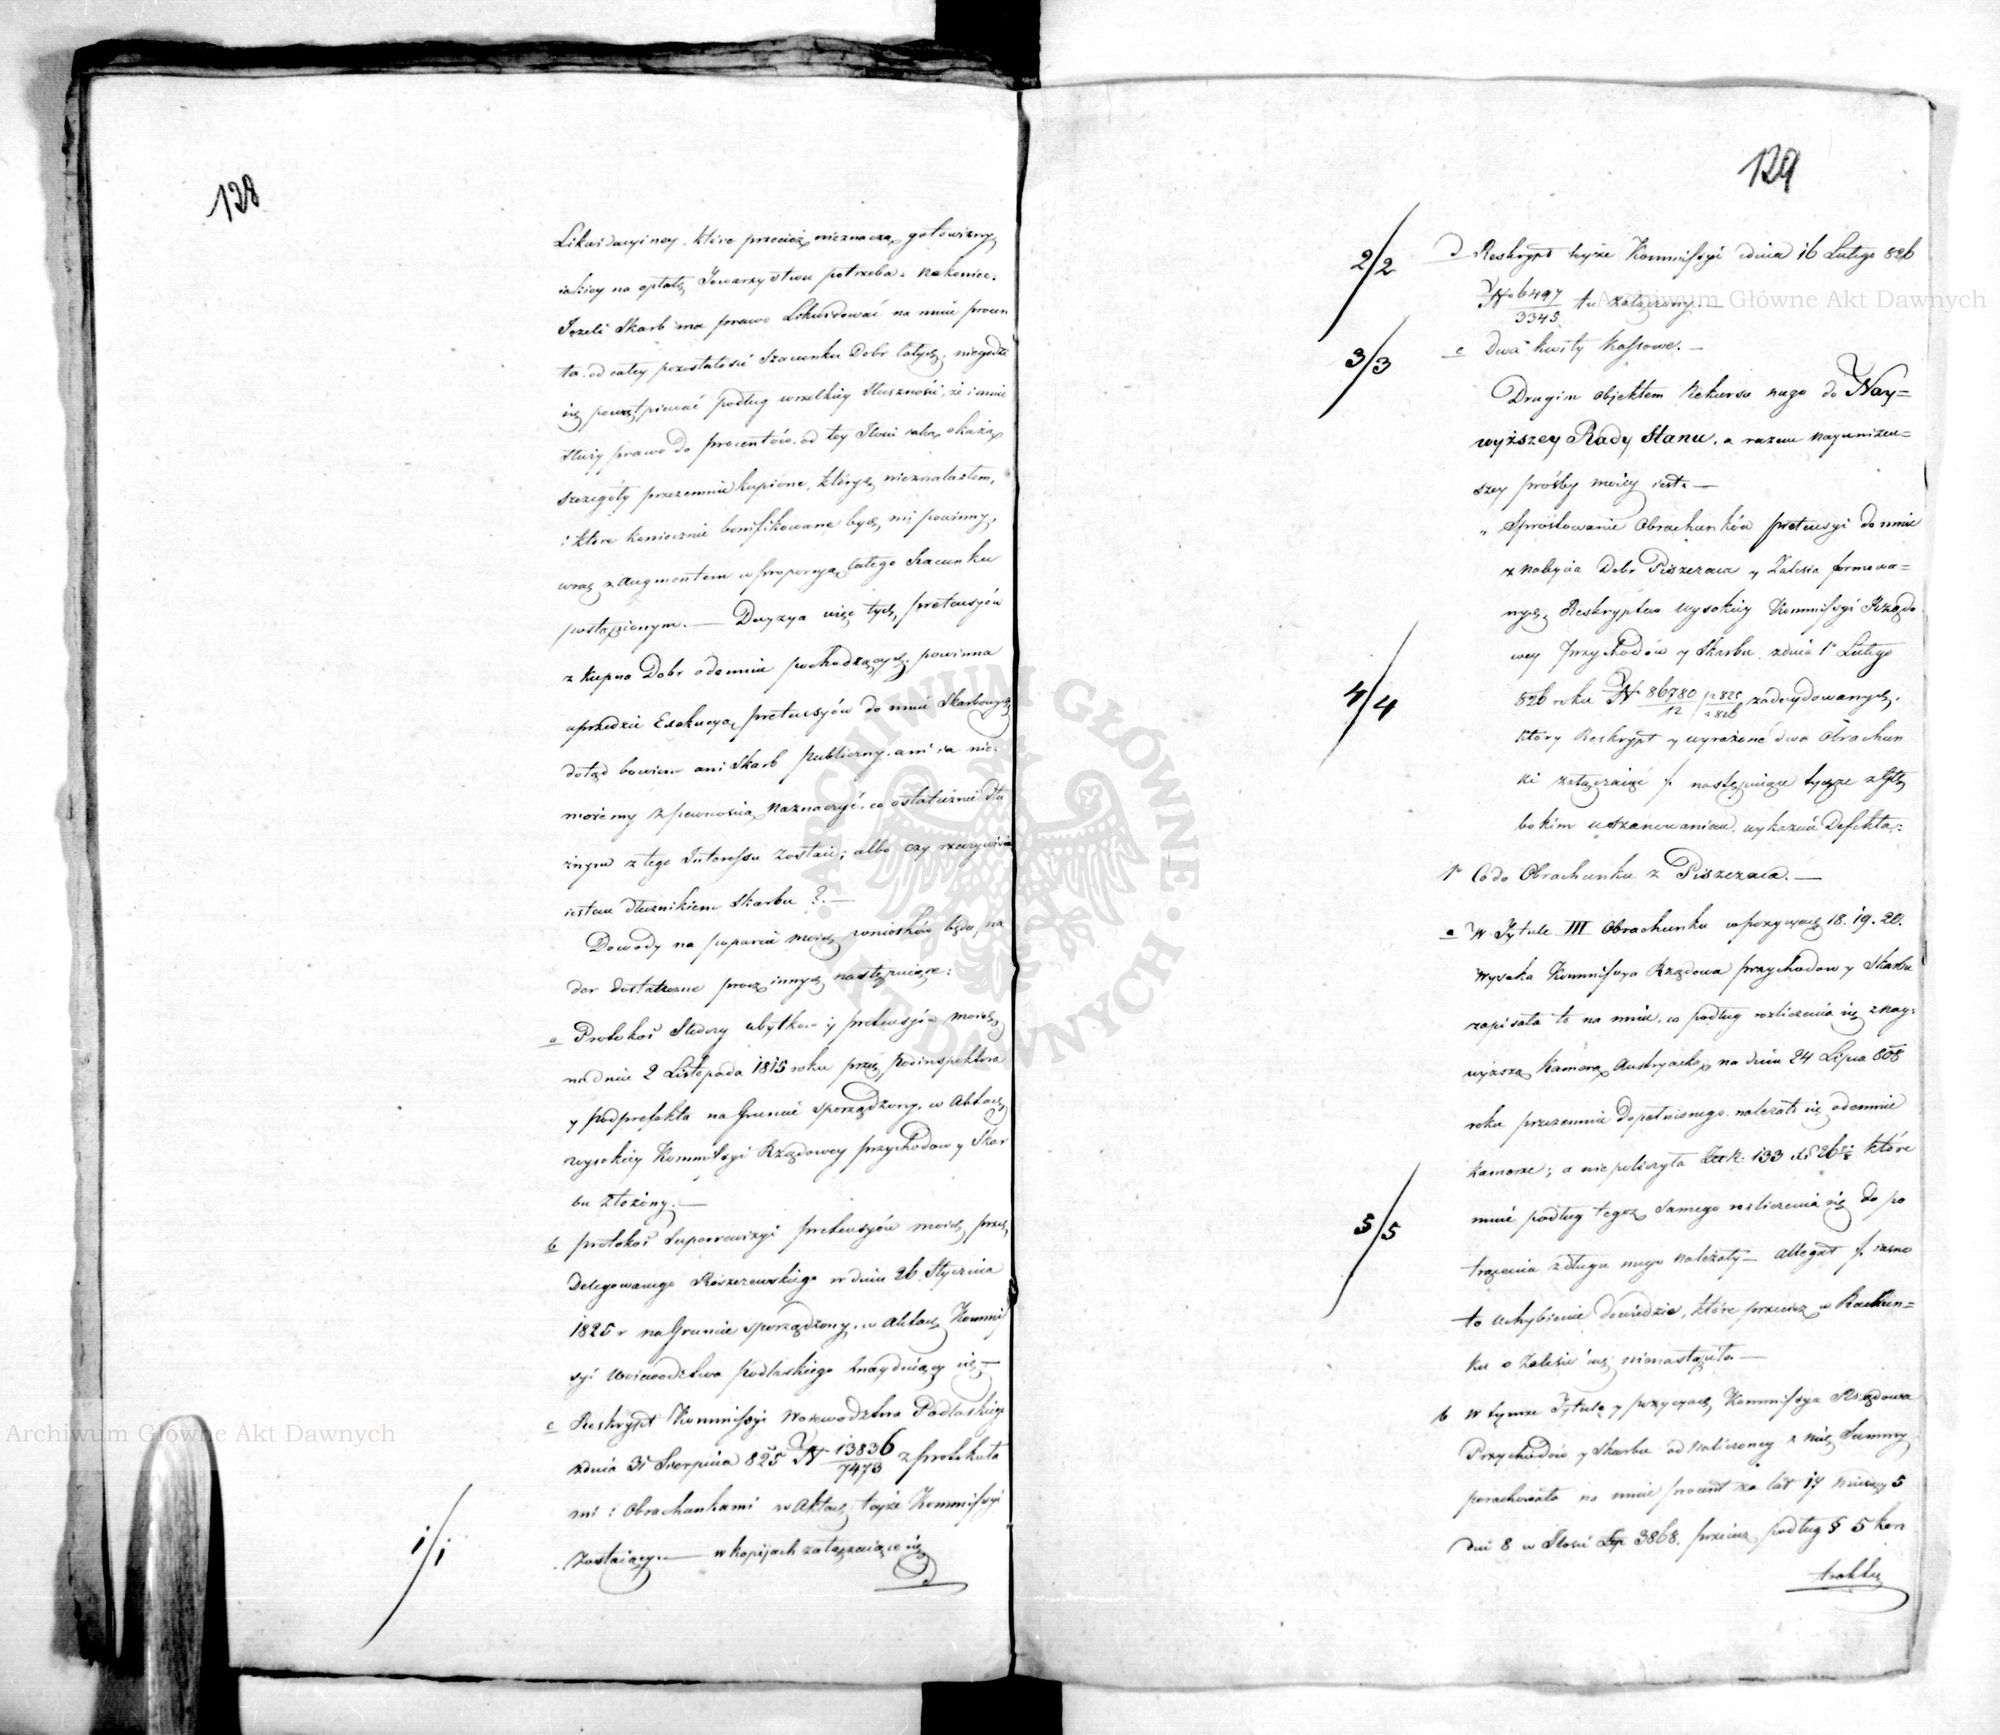 128
Likwidacyiney, które przecież nieznaczą gotowizny
iakiey na opłatę Towarzystwu potrzeba. Nakoniec:
Jeżeli Skarb ma prawo Likwidować na mnie procen
ta od całey pozostałości Szacunku Dobr całych, niegodzi
się powątpiewać podług wszelkiey słuszności, że i mnie
służy prawo do procentów od tey Ilości iaką okażą
szczegóły przezemnie kupione, których nieznalazłem,
i które koniecznie bonifikowane być mi powinny,
wraz z augmentem w proporcyą całego Szacunku
postąpionym. — Decyzya więc tych pretensyów
z kupna Dobr odemnie pochodzących, powinna
uprzedzić Exekucyą pretensyów do mnie Skarbowych
dotąd bowiem ani Skarb publiczny, ani ia nie
możemy z pewnością naznaczyć, co ostatecznie Dłu
żnym z tego Interessu zostaie; albo czy rzeczywiście
iestem dłużnikiem Skarbu ? —
Dowody na poparcie moich wniosków będą na
der dostateczne procz innych następuiące:
a Protokół Sledczy ubytków y pretensyów moich
na dniu 2 Listopada 1815 roku przez Podinspektora
y Podprefekta na Gruncie sporządzony, w Aktach
wysokiey Kommissyi Rządowey przychodów y Skar
bu złożony. —
b protokół Superrewizyi pretensyów moich przez
Delegowanego w dniu 26 Stycznia
1825 r na Gruncie sporządzony, w Aktach Kommis
syi Woiewodztwa Podlaskiego znayduiący się —
c Reskrypt Kommissyi Woiewodztwa Podlaskiego
zdnia 31 Sierpnia 825 N 13836/7473 z protokuła
mi i Obrachunkami w Aktach teyże Kommissyi
zostaiący. — w kopijach załączaiące się
1/1
D
129
2/2
d Reskrypt teyże Kommissyi zdnia 16 Lutego 826
No 6497/3345 tu załączony. —
3/3
e Dwa kwity Kassowe. —
Drugim objektem Rekursu mego do Nay=
wyższey Rady Stanu, a razem nayuniżeń=
szey prośby moiey iest. —
„ Sprostowanie Obrachunków pretensyi do mnie
z nabycia Dobr Piszczaca y Zalesia formowa=
nych, Reskryptem wysokiey Kommissyi Rządo
wey Przychodów y Skarbu zdnia 1o Lutego
4/4
826 roku N 86780/12 zadecydowanych,
który Reskrypt y wyrażone dwa Obrachun
ki załączaiąc następuiące tychże z głę
bokim uszanowaniem wykazuię Defekta:
1o Co do Obrachunku z Piszczaca. —
a W Tytule III Obrachunku w pozycyach 18. 19. 20.
wysoka Kommissya Rządowa przychodów y Skarbu
zapisała to na mnie, co podług rozliczenia się z nay:
wyższą Kamerą Austryacką na dniu 24 Lipca 808
roku przezemnie dopełnionego, należało się odemnie
kamerze; a niepoliczyła 133 26 które
5/5
mnie podług tegoż samego rozliczenia się do po
trącenia z długu mego należały — Allegat iasno
to uchybienie dowiedzie, które przecież w Rachun=
ku o Zalesie nienastąpiło. —
b w tymże Tytule y pozycyach Kommissya Rządowa
Przychodów y Skarbu od naliczoney z nich Summy
porachowała na mnie procent za lat 17 miesięcy 5
dni 8 w Ilości 3868. przecież podług § 5 kon
traktu
Archiwum Główne Akt Dawnych
Archiwum Główne Akt Dawnych
ARCHIWUM GŁÓWNE AKT DAWNYCH